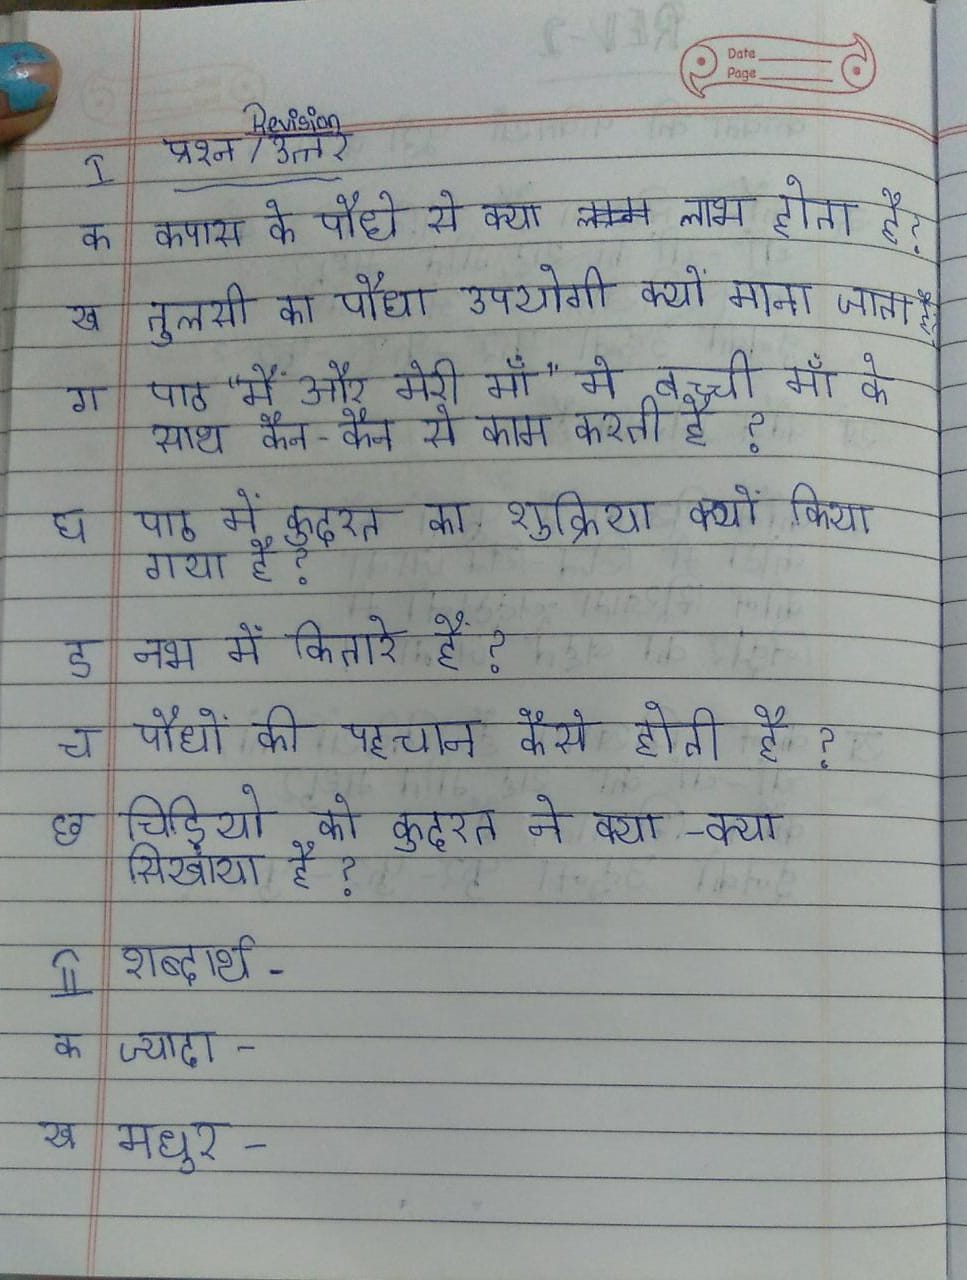 Date
Page
Revision
I प्रश्न / उत्तर
क कपास के पौधे से क्या लाभ होता है?
ख तुलसी का पौधा उपयोगी क्यों माना जाता है?
ग पाठ "मैं और मेरी माँ" मे बच्ची माँ के
साथ कैन-कैन से काम करती है ?
घ पाठ में कुदरत का शुक्रिया क्यों किया
गया है ?
ड नभ में कितारे हैं ?
च पौधों की पहचान कैसे होती है ?
छ चिड़ियो को कुदरत ने क्या -क्या
सिखाया है ?
II शब्दार्थ -
क ज्यादा -
ख मधुर -